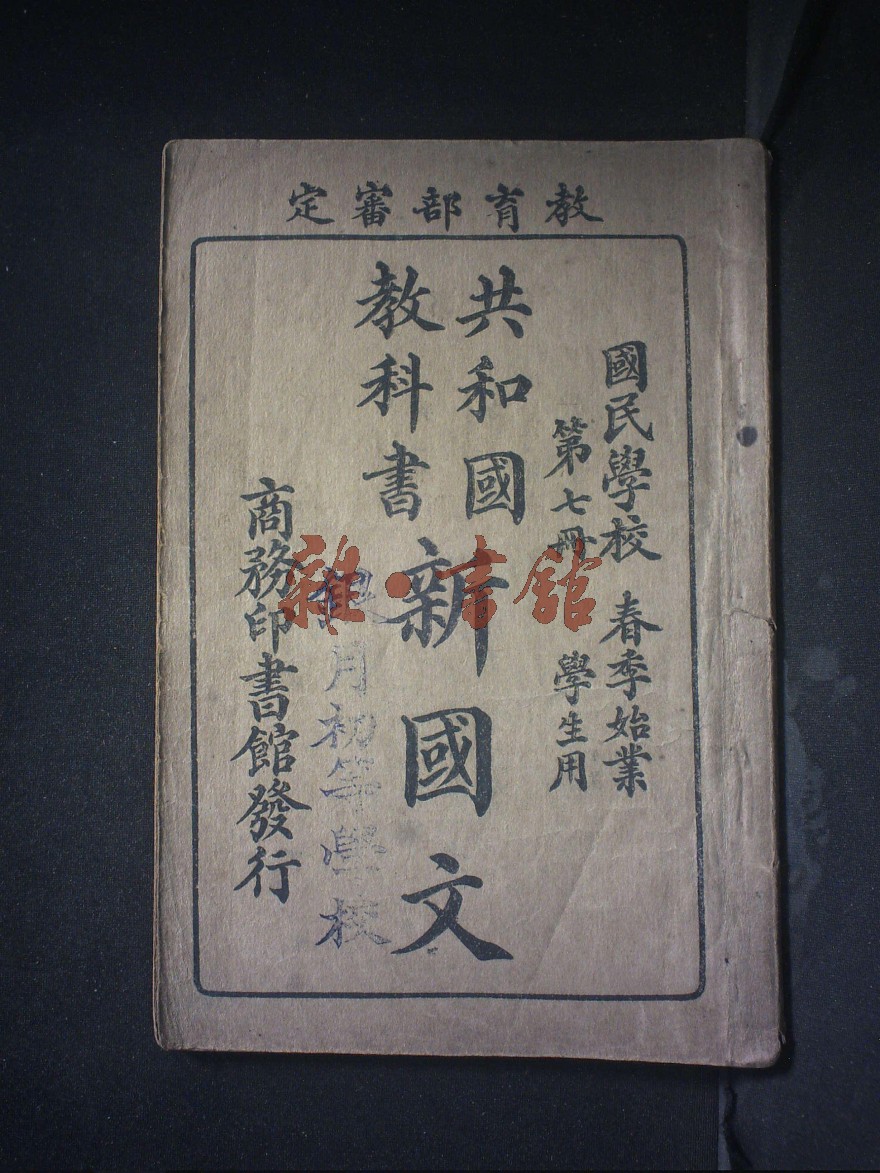 教育部審定
國民學校 春季始業
第七冊 學生用
共和國
教科書
新國文
月初等學校
商務印書館發行
雜·書館